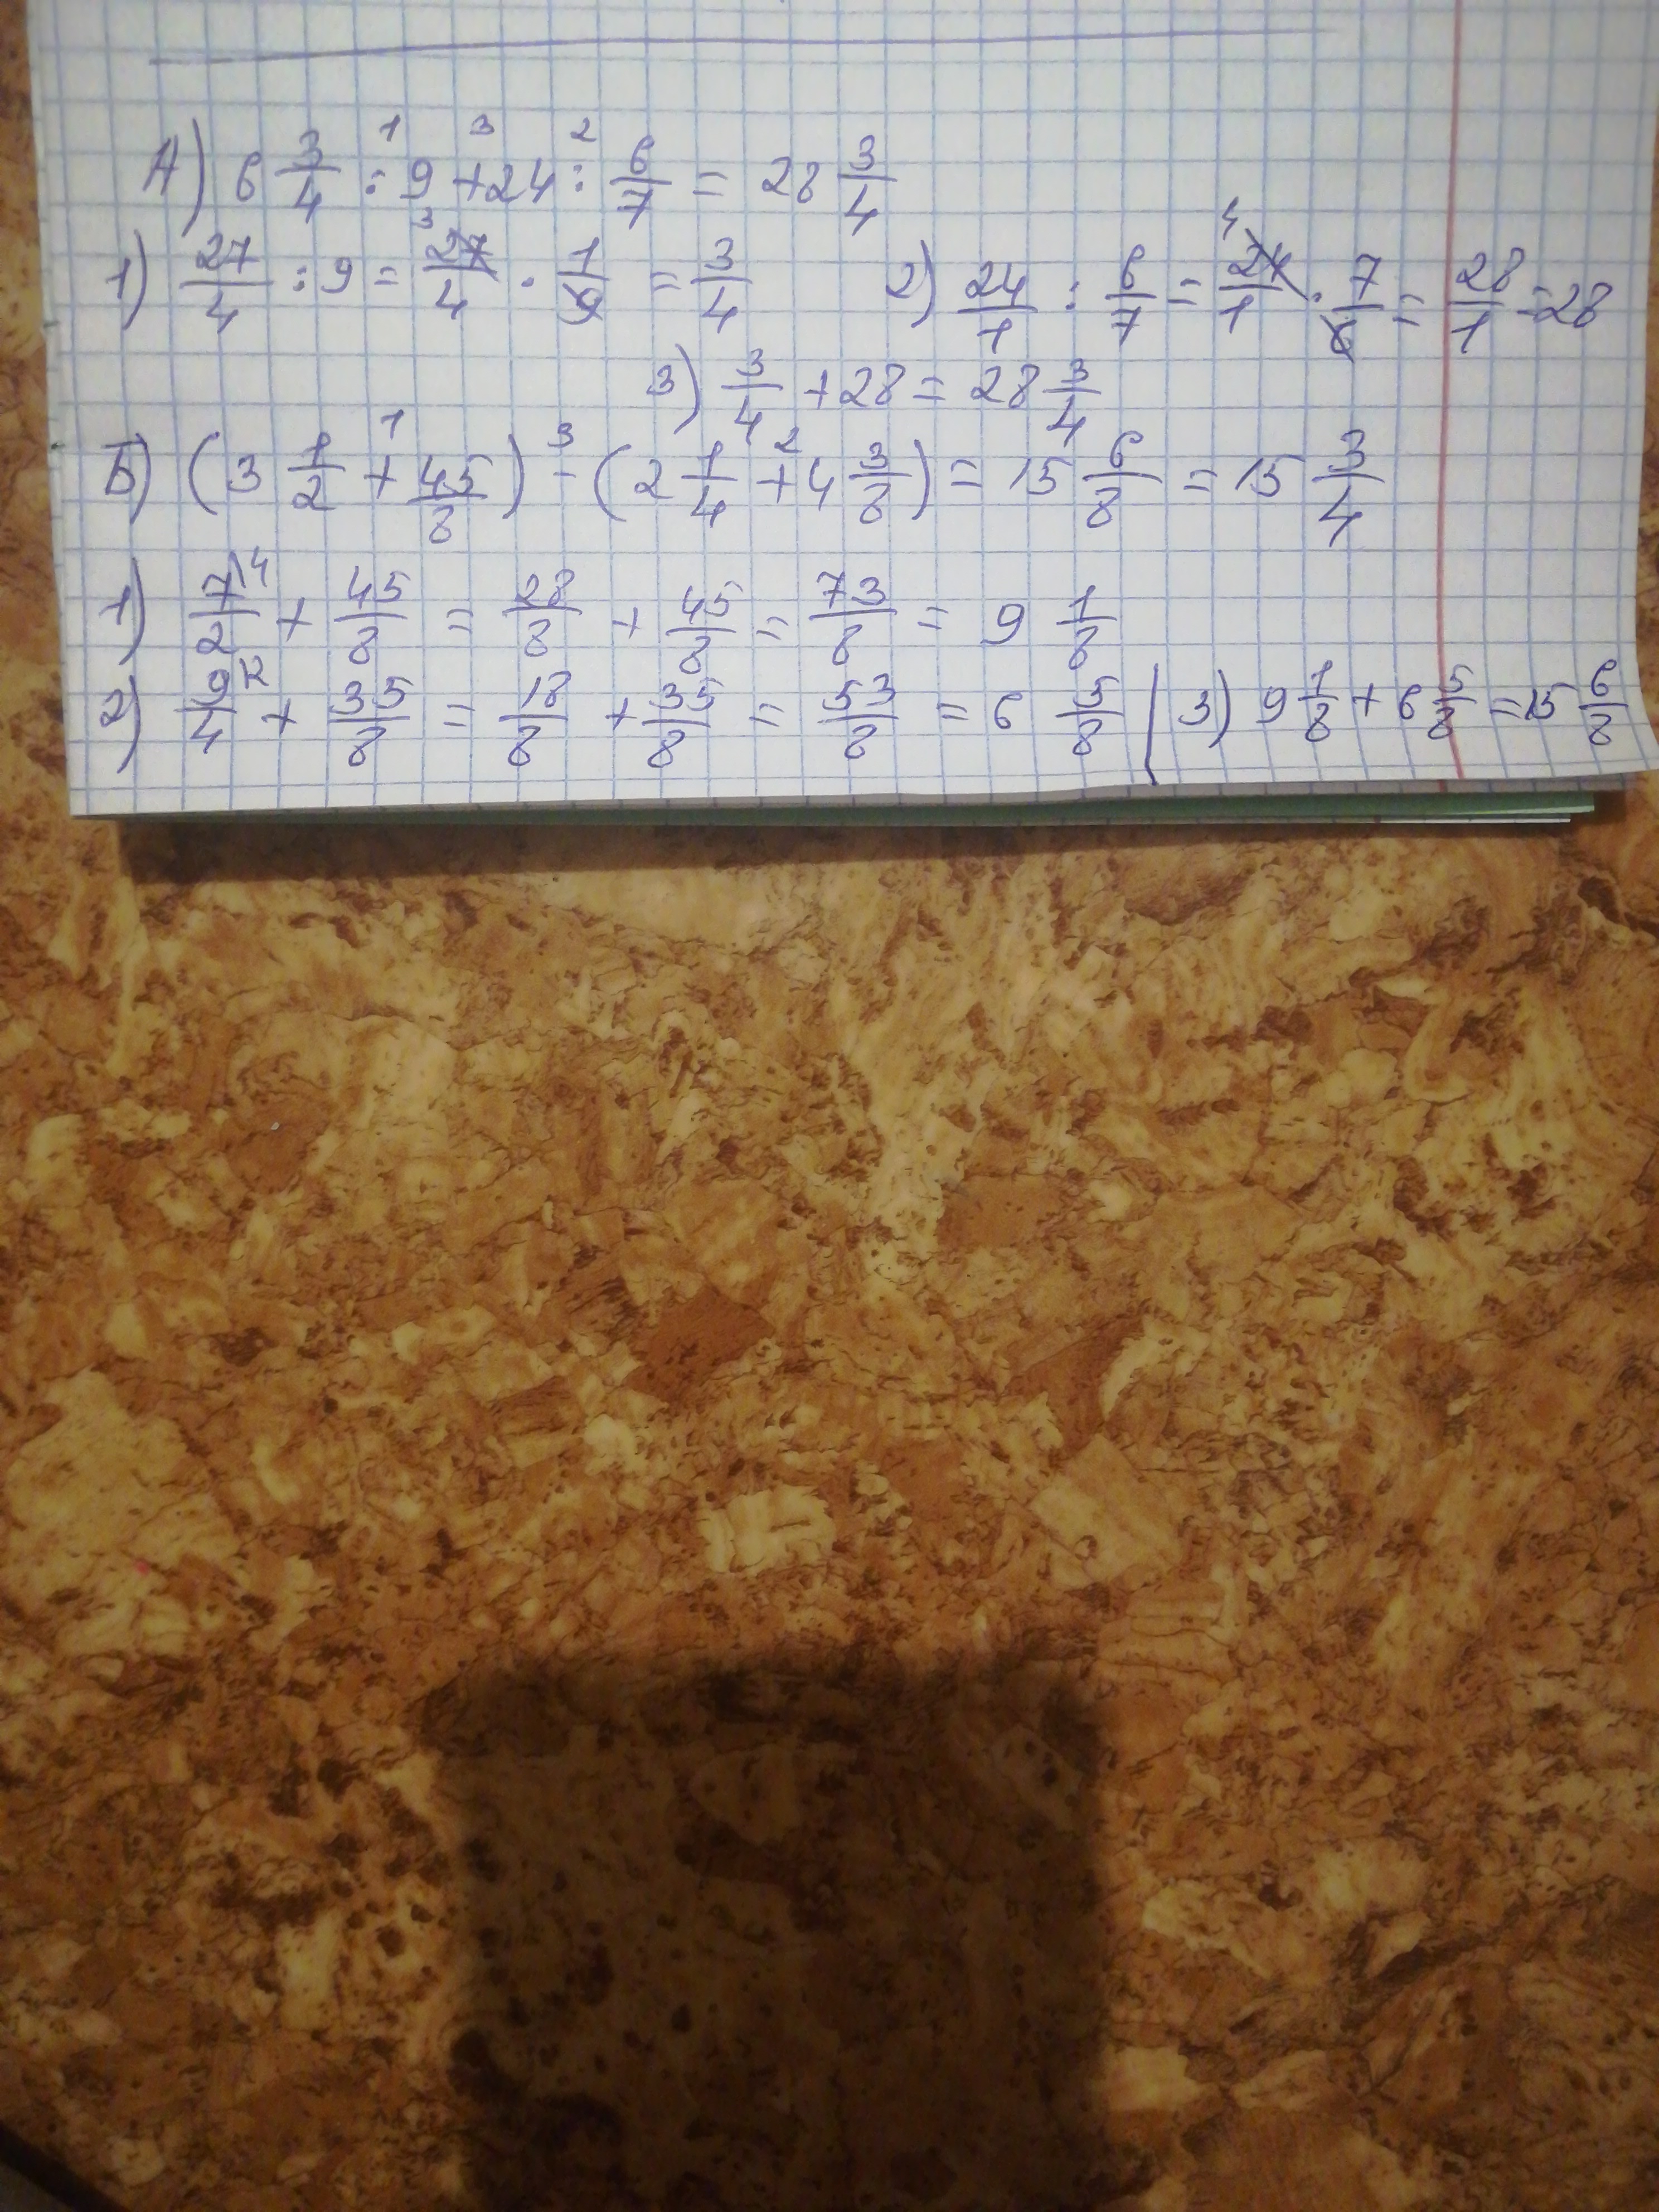 А) 6 3/4 :¹ 9 +³ 24 :² 6/7 = 28 3/4
1) 27/4 : 9 = ³27/4 · 1/9 = 3/4 2) 24/1 : 6/7 = ⁴24/1 · 7/6 = 28/1 = 28
3) 3/4 + 28 = 28 3/4
Б) (3 1/2 +¹ 45/8) -³ (2 1/4 +² 4 3/8) = 15 6/8 = 15 3/4
1) 7/2\4 + 45/8 = 28/8 + 45/8 = 73/8 = 9 1/8
2) 9/4\2 + 35/8 = 18/8 + 35/8 = 53/8 = 6 5/8 | 3) 9 1/8 + 6 5/8 = 15 6/8